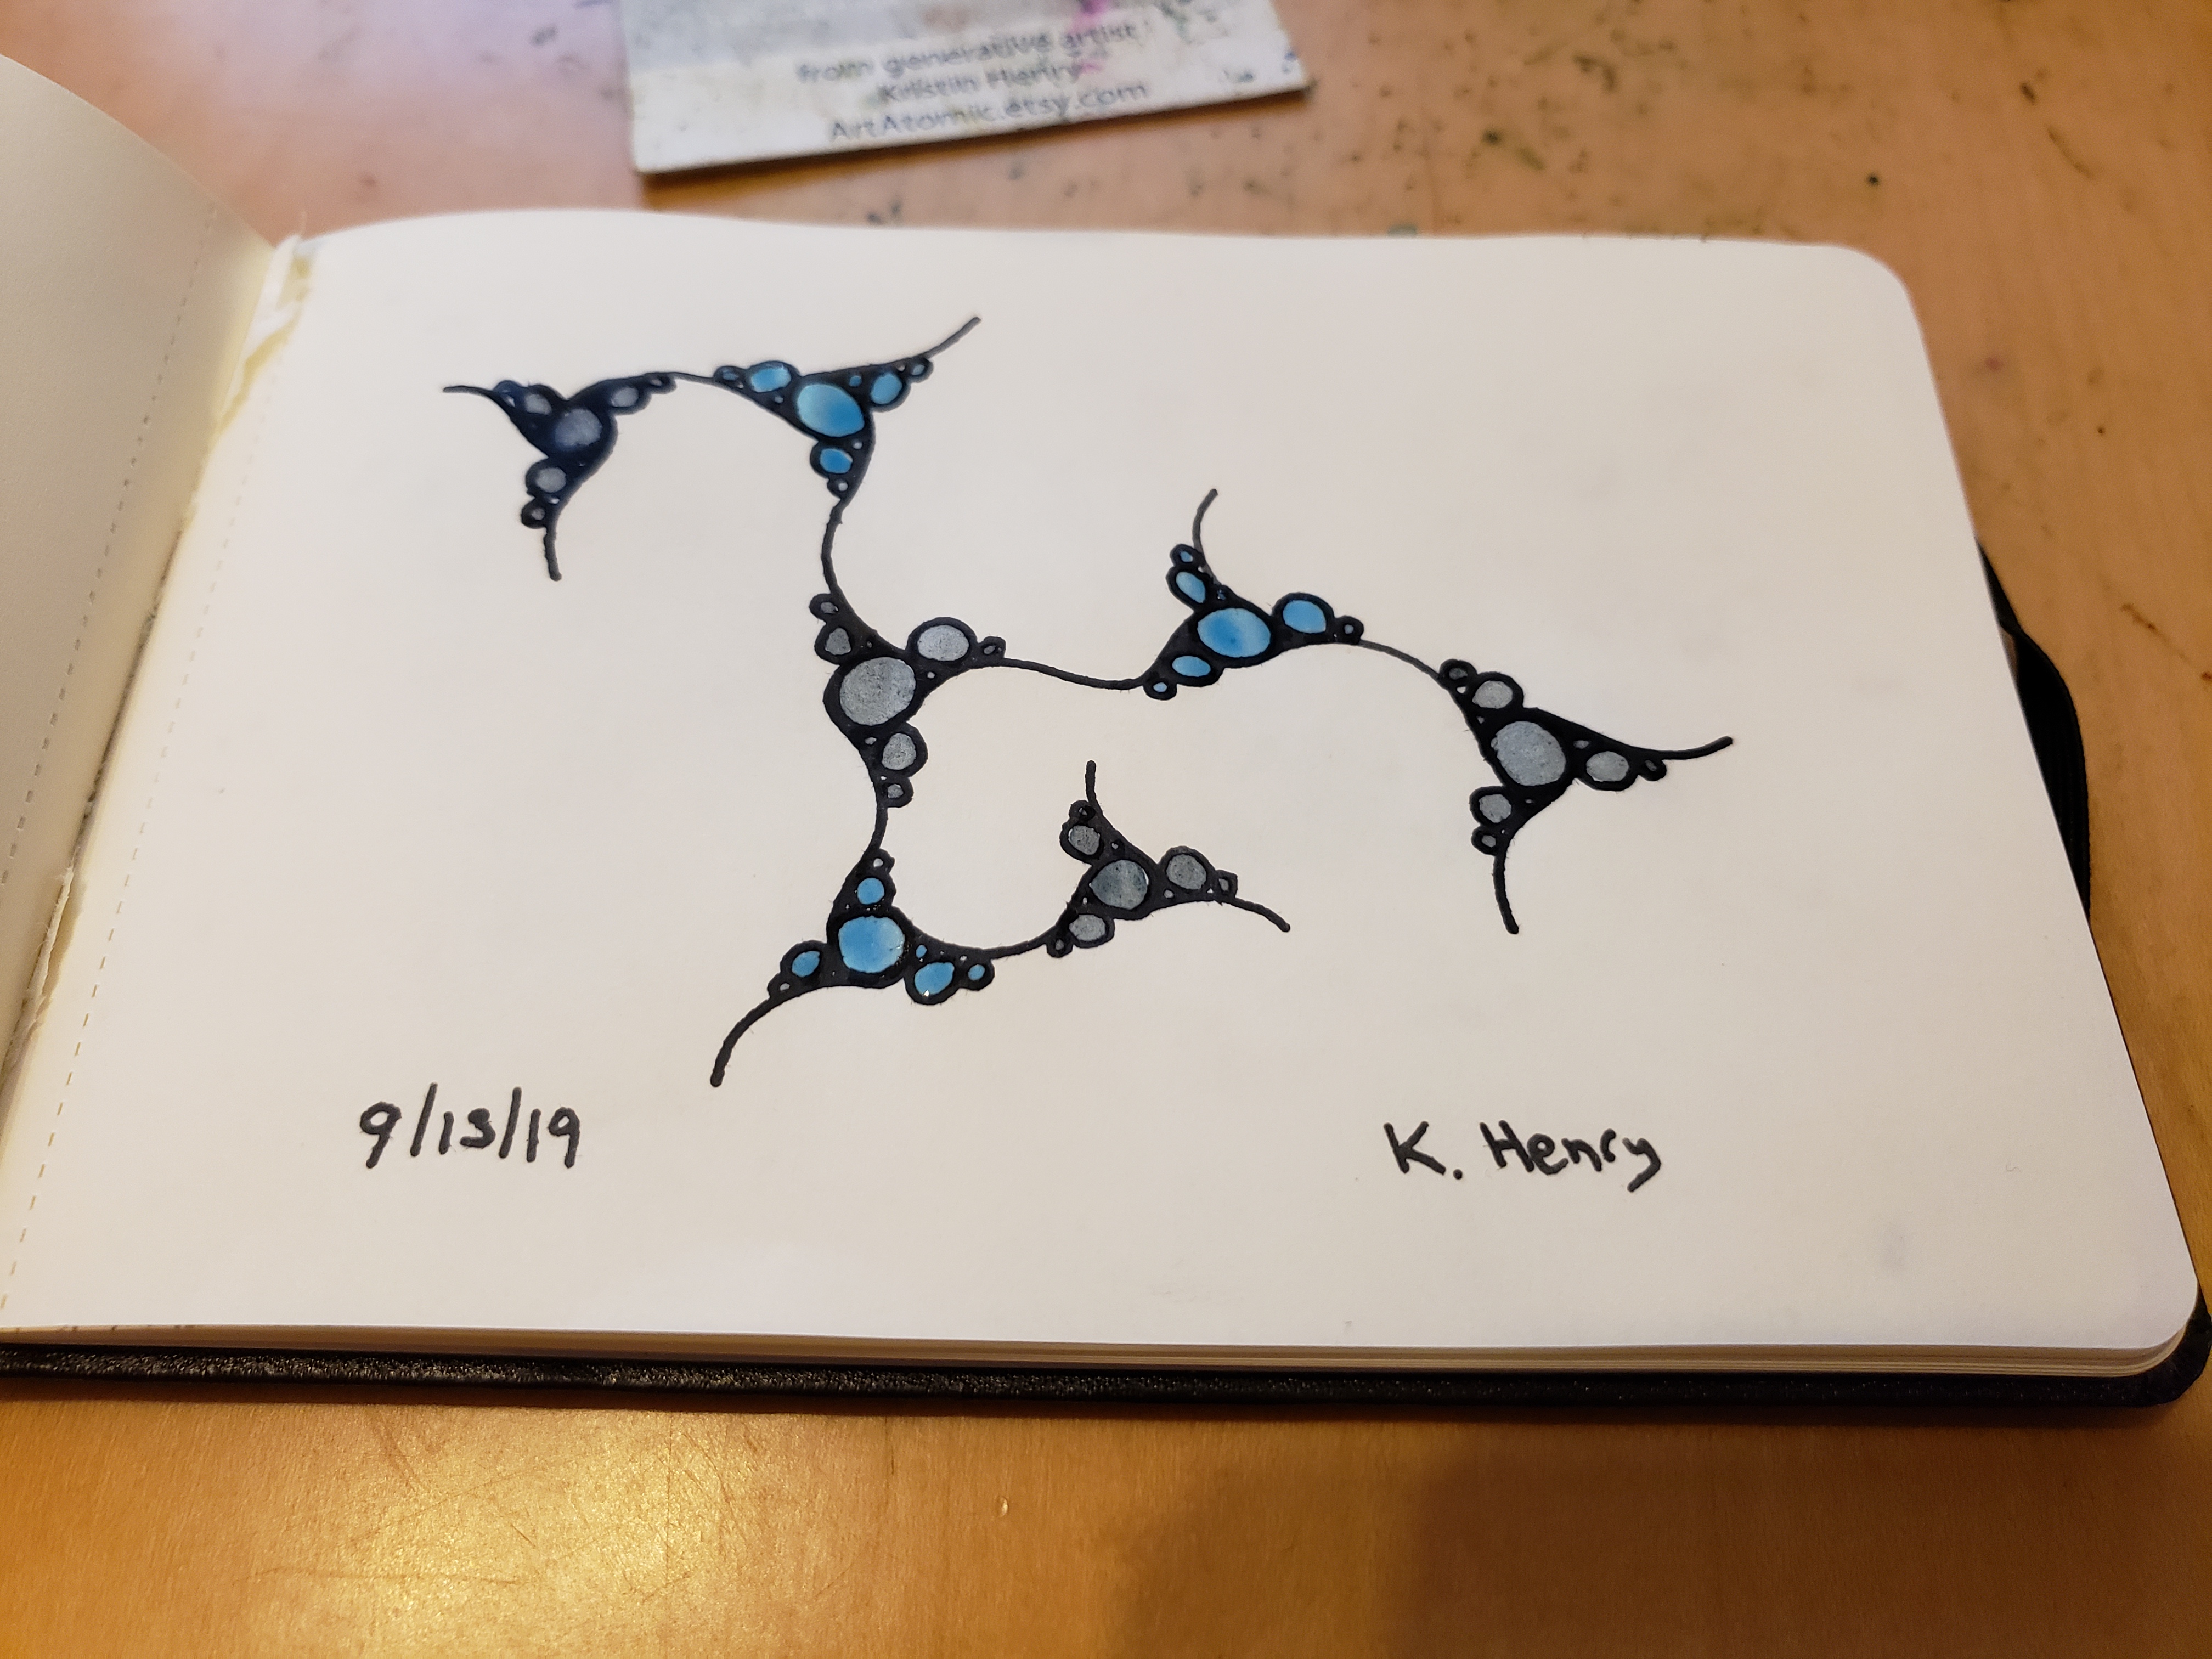 from generative artist
Kristin Henry
ArtAtomic.etsy.com
9/13/19
K. Henry